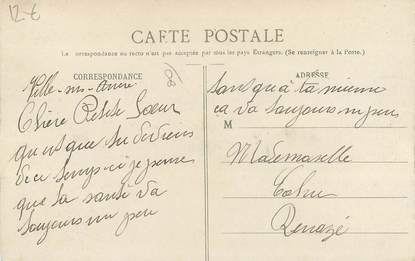 12-€
CARTE POSTALE
La correspondance au recto n'est pas acceptée par tous les pays Étrangers. (Se renseigner à la Poste.)
CORRESPONDANCE
Ville-sur-
Chère Petite Sœur
que tu deviens
de ce temps-ci je pense
que la santé va
toujours un peu
ADRESSE
tant qu'à la mienne
ça va toujours un peu
M
Mademoiselle
Renazé